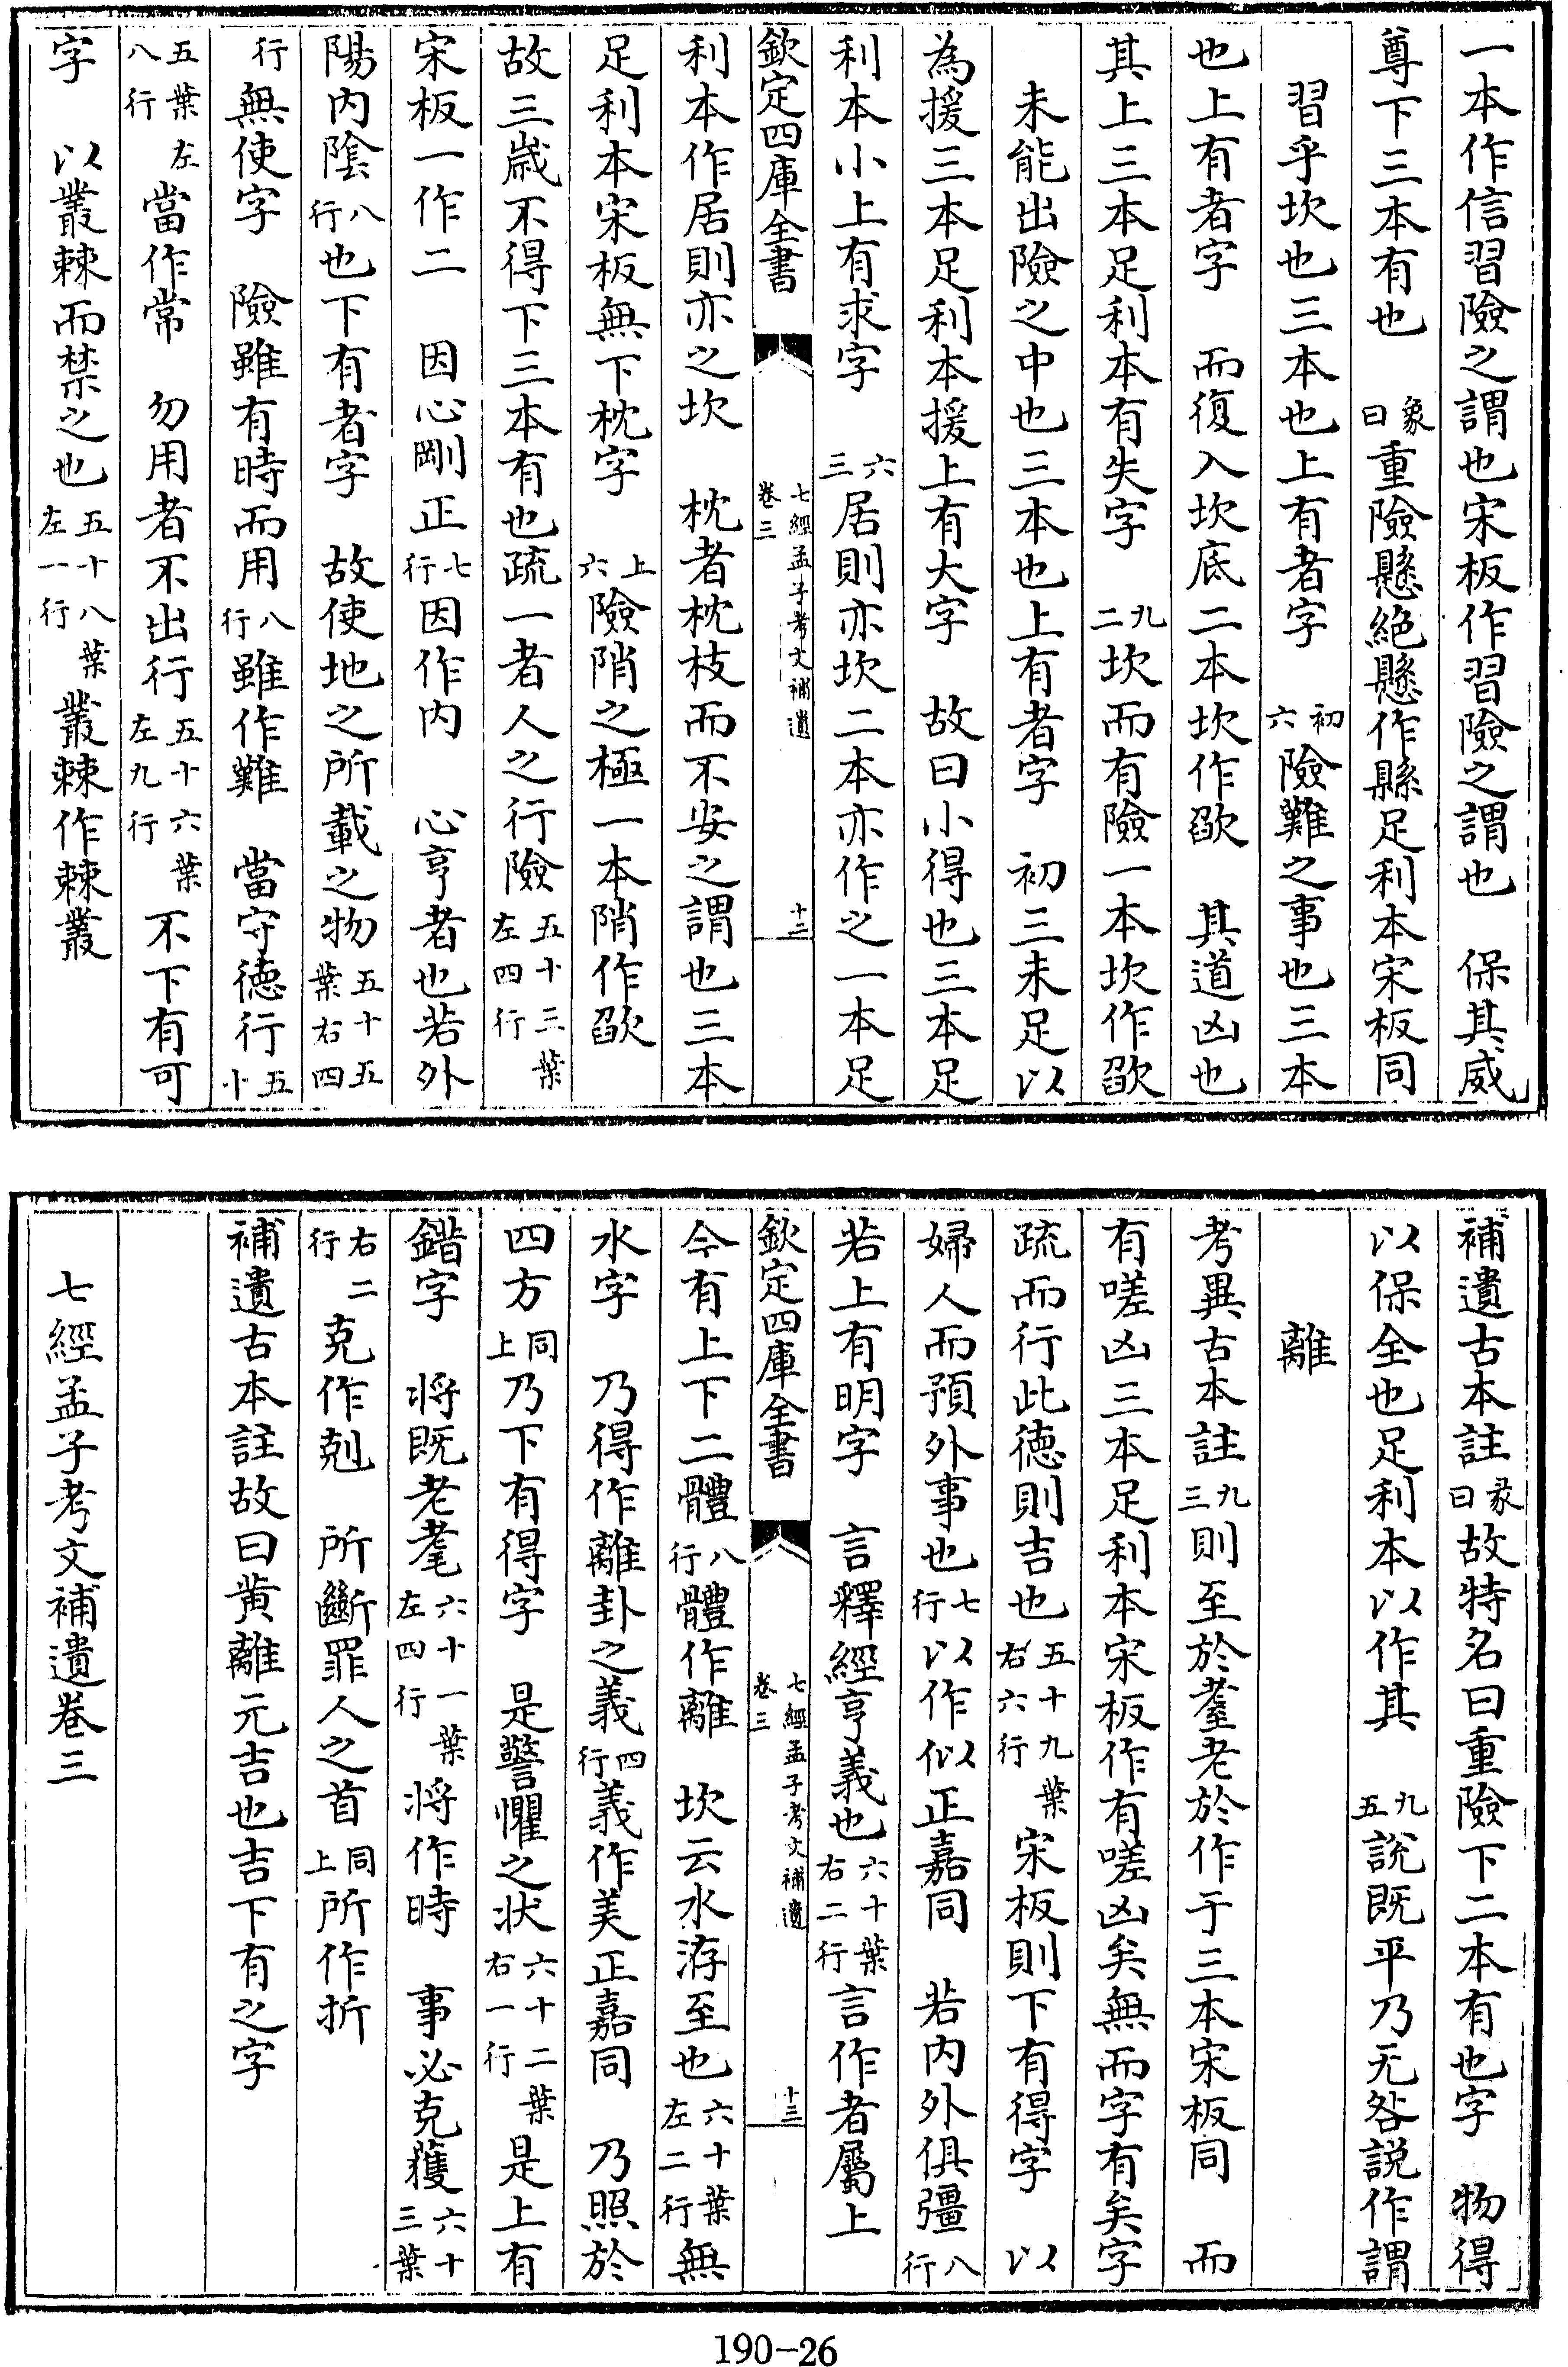 一本作信習險之謂也宋板作習險之謂也　保其威
尊下三本有也　象曰重險懸絶懸作縣足利本宋板同
習乎坎也三本也上有者字　初六險難之事也三本
也上有者字　而復入坎底二本坎作欿　其道凶也
其上三本足利本有失字　九二坎而有險一本坎作欿
未能出險之中也三本也上有者字　初三未足以
為援三本足利本援上有大字　故曰小得也三本足
利本小上有求字　六三居則亦坎二本亦作之一本足
欽定四庫全書　七經孟子考文補遺卷三　十二
利本作居則亦之坎　枕者枕枝而不安之謂也三本
足利本宋板無下枕字　上六險陗之極一本陗作欿
故三歲不得下三本有也疏一者人之行險五十三葉左四行
宋板一作二　因心剛正七行因作內　心亨者也若外
陽內陰八行也下有者字　故使地之所載之物五十五葉右四
行無使字　險雖有時而用八行雖作難　當守德行五十
五葉左八行當作常　勿用者不出行五十六葉左九行不下有可
字　以叢棘而禁之也五十八葉左一行叢棘作棘叢
補遺古本註彖曰故特名曰重險下二本有也字　物得
以保全也足利本以作其　九五說既平乃无咎説作謂
離
考異古本註九三則至於耋老於作于三本宋板同　而
有嗟凶三本足利本宋板作有嗟凶矣無而字有矣字
疏而行此德則吉也五十九葉右六行宋板則下有得字　以
婦人而預外事也七行以作似正嘉同　若內外俱彊八行
若上有明字　言釋經亨義也六十葉右二行言作者屬上
欽定四庫全書　七經孟子考文補遺卷三　十三
今有上下二體八行體作離　坎云水洊至也六十葉左二行無
水字　乃得作離卦之義四行義作美正嘉同　乃照於
四方同上乃下有得字　是警懼之狀六十二葉右一行是上有
錯字　将既老耄六十一葉左四行将作時　事必克獲六十三葉
右二行克作剋　所斷罪人之首同上所作折
補遺古本註故曰黄離元吉也吉下有之字
七經孟子考文補遺卷三
190-26